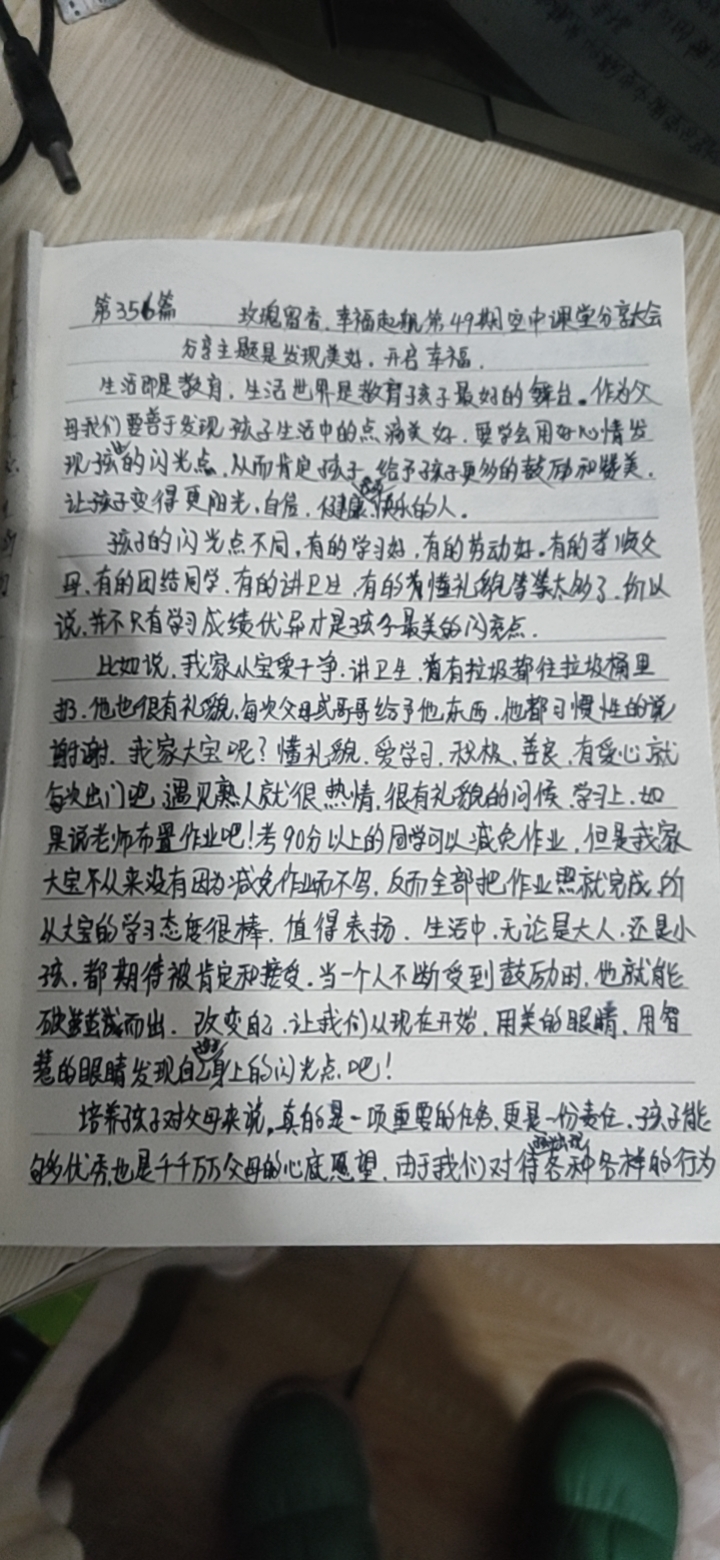 第356篇 玫瑰留香.幸福起航第49期空中课堂分享大会
分享主题是发现美好.开启幸福.
生活即是教育.生活世界是教育孩子最好的舞台。作为父
母我们要善于发现孩子生活中的点滴美好.要学会用好心情发
现孩的闪光点.从而肯定孩子.给予孩子更多的鼓励和赞美.
让孩子变得更阳光,自信.健康.快乐的人。
孩子的闪光点不同,有的学习好,有的劳动好.有的孝顺父
母.有的团结同学.有的讲卫生.有的有懂礼貌等等太多了.所以
说.并不只有学习成绩优异才是孩子最美的闪亮点.
比如说.我家从宝爱干净.讲卫生.有垃圾都往拉圾桶里
扔.他也很有礼貌.每次父母或哥哥给予他东西.他都习惯性的说
谢谢.我家大宝呢?懂礼貌.爱学习.积极.善良.有爱心就
每次出门吧.遇见熟人就很热情.很有礼貌的问候.学习上.如
果说老师布置作业吧!考90分以上的同学可以减免作业.但是我家
大宝不从来没有因为减免作业而不写.反而全部把作业照就完成.所
以大宝的学习态度很棒.值得表扬.生活中.无论是大人.还是小
孩.都期待被肯定和接受.当一个人不断受到鼓励时.他就能
破茧而出.改变自己.让我们从现在开始.用美的眼睛.用智
慧的眼睛发现自身上的闪光点吧!
培养孩子对父母来说,真的是一项重要的任务.更是一份责任.孩子能
够多优秀.也是千千万万父母的心底愿望.由于我们对待各种各样的行为